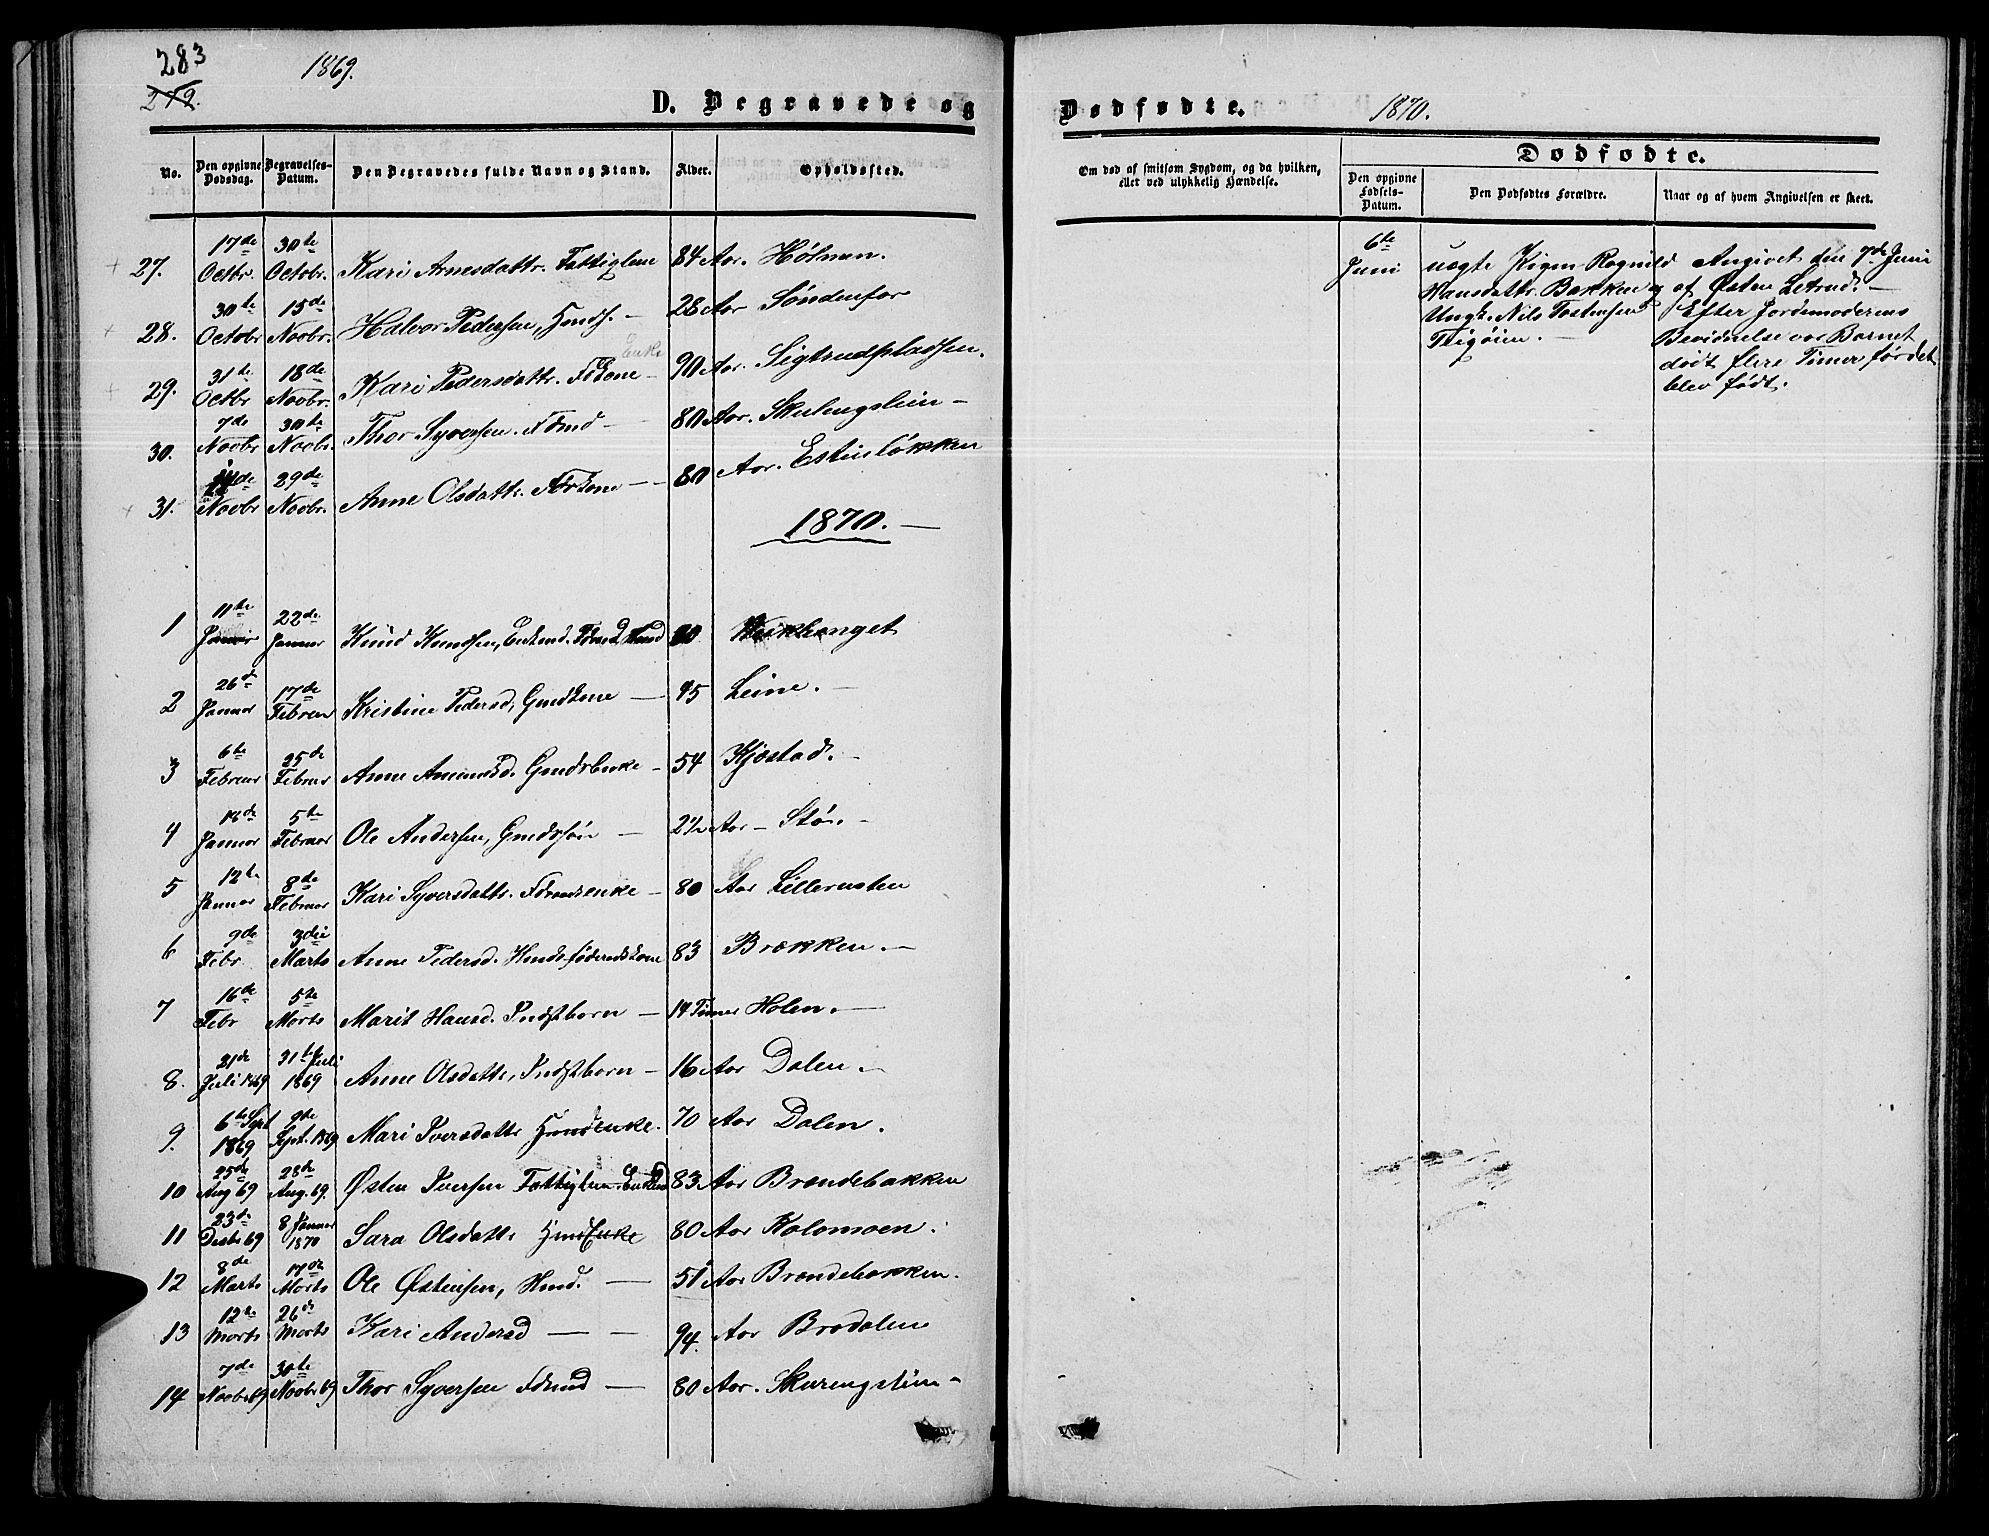 283
272.
1869.
D. Begravede og
No. Den opgivne Dødsdag. Begravelses-Datum. Den Begravedes fulde Navn og Stand. Alder. Opholdssted.
27. 17de Octbr. 30te Octobr. Kari Arnesdattr. Fattiglem 84 Aar. Holmen.
28. 30te Octobr 15de Novbr. Halvor Pedersen, Hmds. — 28 Aar Søndenfor
Enke
29. 31te Octbr 18de Novbr. Kari Pedersdattr. Fdkone — 90 Aar. Sigtrudpladsen.
30. 7de Novbr 30te Novbr. Thor Syversen. Fdmd — 80 Aar. —
31. Novbr 29de Novbr. Anne Olsdattr. — 80 Aar. Estensløkken
1870. —
1 11te Januar 22de Januar Knud Knudsen, Enkemd. 80
2 26de Januar 17de Februar Kristine Pedersd, Gmdkone — 45 Leine. —
3 6te Februar 25de Februar Anne Amundsd. Gmdsenke — 54 Kjøstad. —
4 18de Januar 5te Februar Ole Andersen, Gmdssøn — 2½ Aar — Stø. —
5 12te Januar 8de Februar Kari Syversdattr. Fdmdsenke — 80 Aar Lillerusten
6 9de Febr 3die Marts Anne Pedersd. 83 Brækken. —
7 16de Febr 5te Marts Marit Hansd. Indstbarn — 14 Timer Holen. —
8. 21de Juli 1869 31te Juli 1869 Anne Olsdattr, Indstbarn — 16 Aar Dalen. —
9. 6te Sept 1869 9de Sept. 1869 Mari Iversdattr Hmdenke. 70 Aar Dalen.
10 25de Aug 69 28de Aug. 69. Østen Iversen Fattiglem. Enkemd 83 Aar Brændebakken
11 23de Decbr 69 8 Januar 1870 Sara Olsdattr HmdEnke 80 Aar Kolomoen.
12 8de Marts 17de Marts Ole Østensen, Hmd. — 51 Aar Brændebakken.
13 12te Marts 26de Marts Kari Andersd — — 94. Aar Bradalen
14 7de Novbr 69 30te Novbr 69 Thor Syversen Fdmd — 80 Aar. Skurengslien —
Dødfødte.
1870.
Om død af smitsom Sygdom, og da hvilken,
eller ved ulykkelig Hændelse.
Dødfødte.
Den opgivne Fødsels-Datum. Den Dødfødtes Forældre. Naar og af hvem Angivelsen er skeet.
6te
Juni
uægte Pigen Ragnild
Hansdattr. Bakken og
Ungk. Nils Tostensen
Angivet den 7de Juni
af Østen Letrud. —
Efter Jordemoderens
Bevidnelse var Barnet
dødt flere Timer før det
blev født.